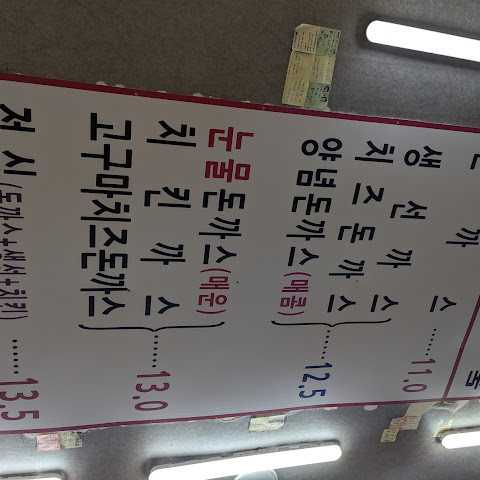 까 스 ······ 11.0
생 선 까 스
치 즈 돈 까 스
양념돈까스(매콤) ······ 12.5
눈물돈까스(매운)
치 킨 까 스
고구마치즈돈까스 ······ 13.0
정식(돈까스+생선+치킨) ······ 13.5